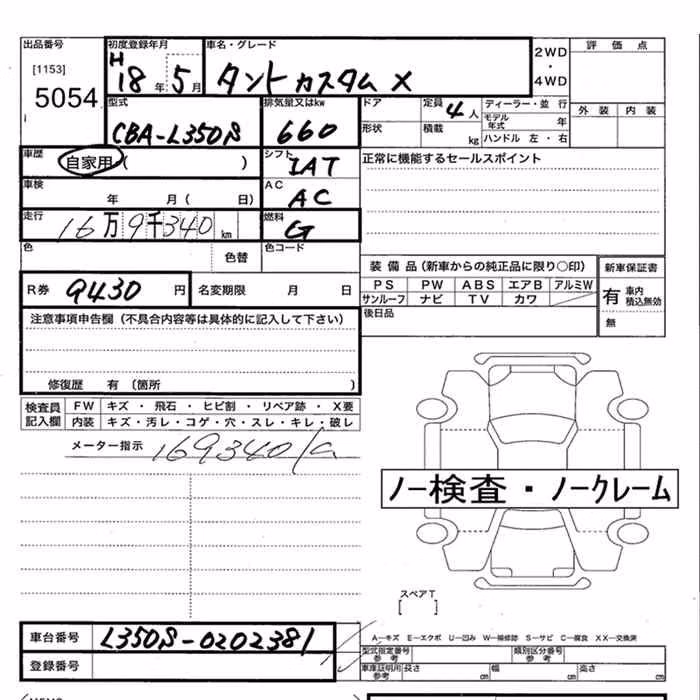 出品番号 [1153] 5054
初度登録年月 H 18 年 5 月
車名・グレード タントカスタム X
2WD ・ 4WD
評価点
外装 内装
型式 CBA-L350S
排気量又はkw 660
ドア
定員 4 人
ディーラー・並行
モデル年式 年
形状
積載 kg
ハンドル 左・右
車歴 自家用 ( )
シフト IAT
正常に機能するセールスポイント
車検 年 月 ( 日)
AC AC
走行 16万9千340 km
燃料 G
色 色替
色コード
装備品(新車からの純正品に限り○印)
新車保証書
PS PW ABS エアB アルミW
サンルーフ ナビ TV カワ
有 車内積込無効
無
R券 9430 円
名変期限 月 日
後日品
注意事項申告欄 (不具合内容等は具体的に記入して下さい)
修復歴 有 〔箇所 〕
検査員記入欄
FW キズ ・ 飛石 ・ ヒビ割 ・ リペア跡 ・ X要
内装 キズ・汚レ・コゲ・穴・スレ・キレ・破レ
メーター指示 169340
ノー検査・ノークレーム
スペアT
[ ]
車台番号 L350S-0202381
A―キズ E―エクボ U―凹み W―補修跡 S―サビ C―腐食 XX―交換済
登録番号
型式指定番号 参考
類別区分番号 参考
車庫証明用参考 長さ cm 幅 cm 高さ cm